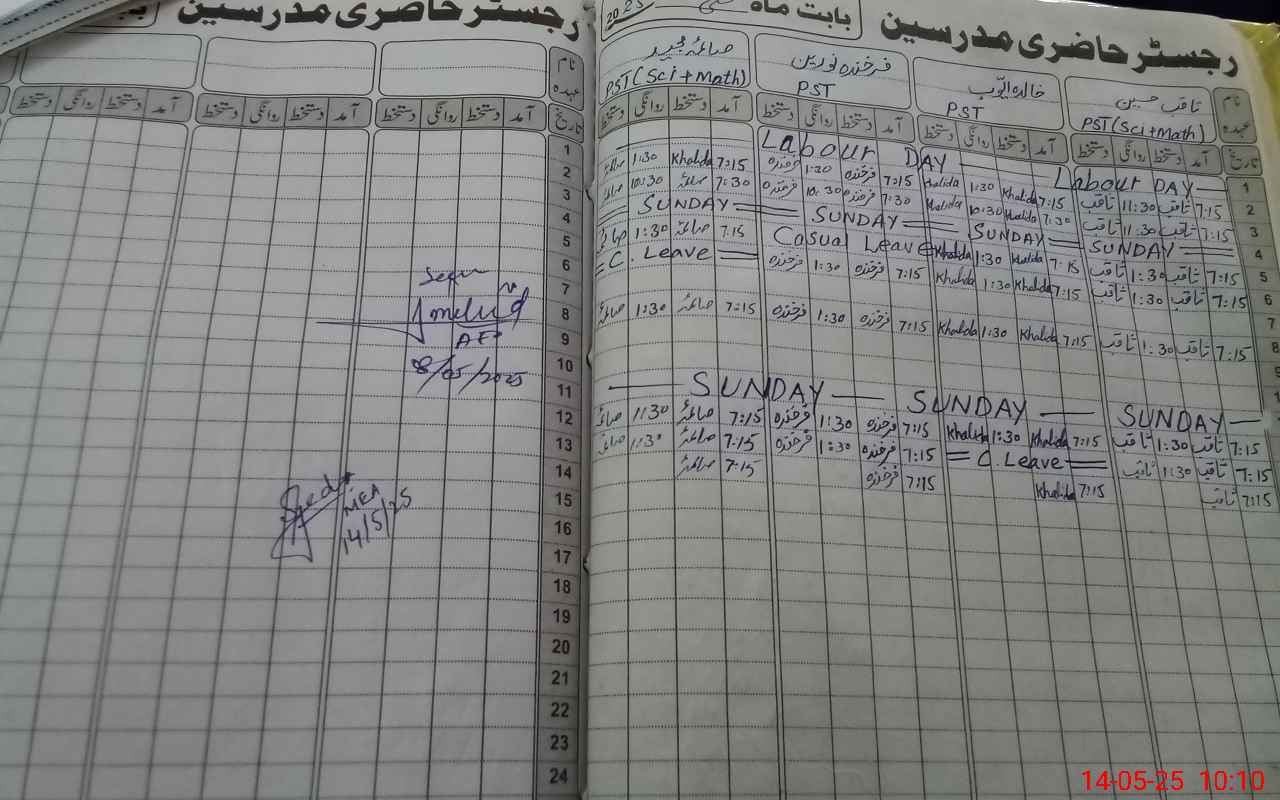 رجسٹر حاضری مدرسین بابت ماہ مئی 2025
نام عہدہ
ثاقب حسین PST (Sci+Math)
خالدہ ایوب PST
فرخندہ نورین PST
صائمہ مجید PST (Sci+Math)
تاریخ آمد دستخط روانگی دستخط آمد دستخط روانگی دستخط آمد دستخط روانگی دستخط آمد دستخط روانگی دستخط
1 Labour DAY Labour DAY
2 7:15 ثاقب 11:30 ثاقب 7:15 Khalida 1:30 Khalida 7:15 فرخندہ 1:30 فرخندہ 7:15 Khalida 1:30 صائمہ
3 7:15 ثاقب 11:30 ثاقب 7:30 Khalida 10:30 Khalida 7:30 فرخندہ 10:30 فرخندہ 7:30 صائمہ 10:30 صائمہ
4 SUNDAY SUNDAY SUNDAY SUNDAY
5 7:15 ثاقب 1:30 ثاقب 7:15 Khalida 1:30 Khalida Casual Leave 7:15 صائمہ 1:30 صائمہ
6 7:15 ثاقب 1:30 ثاقب 7:15 Khalida 1:30 Khalida 7:15 فرخندہ 1:30 فرخندہ C. Leave
7
8 7:15 ثاقب 1:30 ثاقب 7:15 Khalida 1:30 Khalida 7:15 فرخندہ 1:30 فرخندہ 7:15 صائمہ 1:30 صائمہ
SUNDAY SUNDAY SUNDAY
7:15 ثاقب 1:30 ثاقب 7:15 Khalida 1:30 Khalida 7:15 فرخندہ 1:30 فرخندہ 7:15 صائمہ 1:30 صائمہ
7:15 ثاقب 1:30 ثاقب C. Leave 7:15 فرخندہ 1:30 فرخندہ 7:15 صائمہ 1:30 صائمہ
7:15 ثاقب 7:15 Khalida 7:15 فرخندہ 7:15 صائمہ
رجسٹر حاضری مدرسین
نام عہدہ
تاریخ آمد دستخط روانگی دستخط آمد دستخط روانگی دستخط آمد دستخط روانگی دستخط
1
2
3
4
5
6
7
8
9
10
11
12
13
14
15
16
17
18
19
20
21
22
23
24
Seen
8/05/2025
MEA
14/5/25
14-05-25 10:10